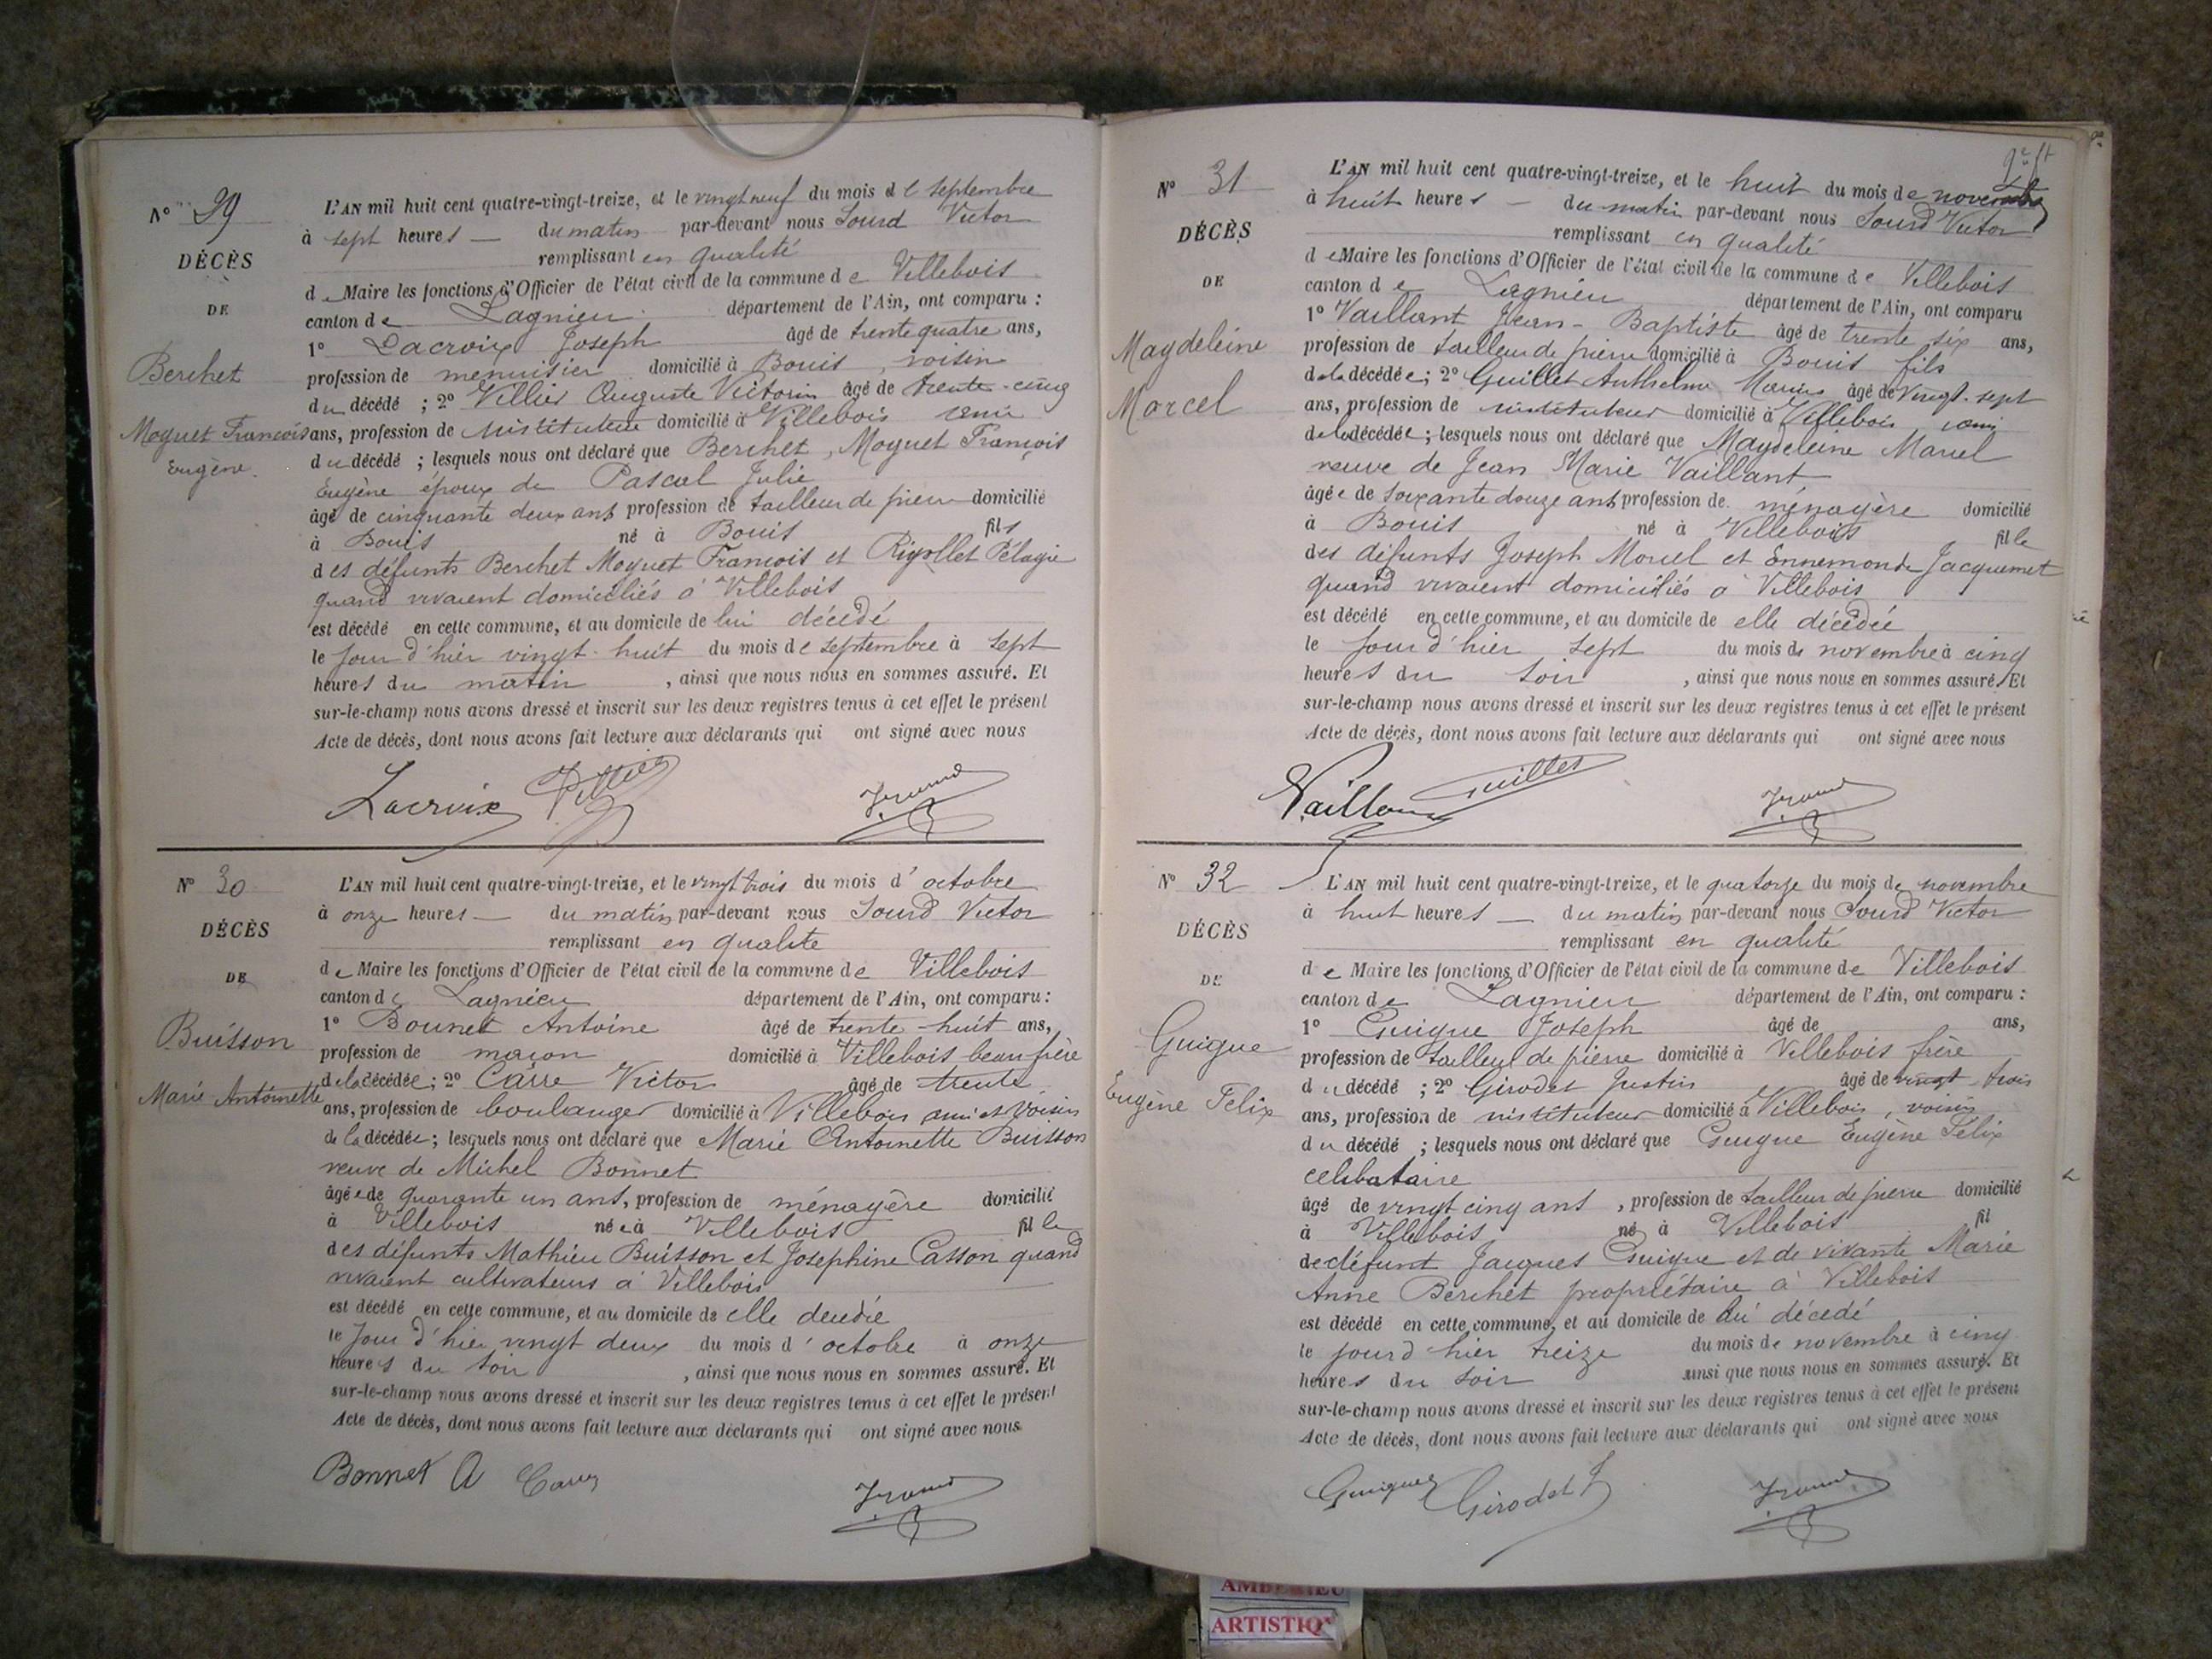 N° 29
DÉCÈS
DE
Berchet
Moquet François
Eugène
L'AN mil huit cent quatre-vingt-treize, et le vingt neuf du mois de septembre
à sept heures du matin par-devant nous Sourd Victor
remplissant en qualité
de Maire les fonctions d'Officier de l'état civil de la commune de Villebois
canton de Lagnieu département de l'Ain, ont comparu :
1° Lacroix Joseph âgé de trente quatre ans,
profession de menuisier domicilié à Bouis, voisin
du décédé ; 2° Villier Auguste Victorin âgé de trente-cinq
ans, profession de instituteur domicilié à Villebois ami
du décédé ; lesquels nous ont déclaré que Berchet, Moquet François
Eugène époux de Pascal Julie
âgé de cinquante deux ans profession de tailleur de pierre domicilié
à Bouis né à Bouis fils
des défunts Berchet Moquet François et Rigollet Pélagie
quand vivaient domiciliés à Villebois
est décédé en cette commune, et au domicile de lui décédé
le jour d'hier vingt-huit du mois de septembre à sept
heures du matin, ainsi que nous nous en sommes assuré. Et
sur-le-champ nous avons dressé et inscrit sur les deux registres tenus à cet effet le présent
Acte de décès, dont nous avons fait lecture aux déclarants qui ont signé avec nous
Lacroix
N° 30
DÉCÈS
DE
Buisson
Marie Antoinette
L'AN mil huit cent quatre-vingt-treize, et le vingt trois du mois d'octobre
à onze heures du matin par-devant nous Sourd Victor
remplissant en qualite
de Maire les fonctions d'Officier de l'état civil de la commune de Villebois
canton de Lagnieu département de l'Ain, ont comparu :
1° Bonnet Antoine âgé de trente-huit ans,
profession de maçon domicilié à Villebois beau frère
de la décédée ; 2° Carre Victor âgé de trente
ans, profession de boulanger domicilié à Villebois ami et voisin
de la décédée ; lesquels nous ont déclaré que Marie Antoinette Buisson
veuve de Michel Bonnet
âgée de quarante un ans, profession de ménagère domicilié
à Villebois née à Villebois fille
des défunts Mathieu Buisson et Josephine Casson quand
vivaient cultivateurs à Villebois
est décédé en cette commune, et au domicile de elle décédée
le jour d'hier vingt deux du mois d'octobre à onze
heures du soir, ainsi que nous nous en sommes assuré. Et
sur-le-champ nous avons dressé et inscrit sur les deux registres tenus à cet effet le présent
Acte de décès, dont nous avons fait lecture aux déclarants qui ont signé avec nous
Bonnet A
N° 31
DÉCÈS
DE
Magdeleine
Marcel
L'AN mil huit cent quatre-vingt-treize, et le huit du mois de novembre
à huit heures du matin par-devant nous Sourd Victor
remplissant en qualité
de Maire les fonctions d'Officier de l'état civil de la commune de Villebois
canton de Lagnieu département de l'Ain, ont comparu
1° Vaillant Jean-Baptiste âgé de trente six ans,
profession de tailleur de pierre domicilié à Bouis fils
de la décédée ; 2° Guillet Anthelme Marius âgé de vingt-sept
ans, profession de instituteur domicilié à Villebois ami
de la décédée ; lesquels nous ont déclaré que Magdeleine Marcel
veuve de Jean Marie Vaillant
âgée de soixante douze ans profession de ménagère domicilié
à Bouis né à Villebois fille
des défunts Joseph Marcel et Ennemonde Jacquemet
quand vivaient domiciliés à Villebois
est décédé en cette commune, et au domicile de elle décédée
le jour d'hier sept du mois de novembre à cinq
heures du soir, ainsi que nous nous en sommes assuré. Et
sur-le-champ nous avons dressé et inscrit sur les deux registres tenus à cet effet le présent
Acte de décès, dont nous avons fait lecture aux déclarants qui ont signé avec nous
Vaillant Guillet
N° 32
DÉCÈS
DE
Guigue
Eugène Felix
L'AN mil huit cent quatre-vingt-treize, et le quatorze du mois de novembre
à huit heures du matin par-devant nous Sourd Victor
remplissant en qualité
de Maire les fonctions d'Officier de l'état civil de la commune de Villebois
canton de Lagnieu département de l'Ain, ont comparu :
1° Guigue Joseph âgé de ans,
profession de tailleur de pierre domicilié à Villebois frère
du décédé ; 2° Girodet Justin âgé de vingt trois
ans, profession de instituteur domicilié à Villebois, voisin
du décédé ; lesquels nous ont déclaré que Guigue Eugène Félix
celibataire
âgé de vingt cinq ans, profession de tailleur de pierre domicilié
à Villebois né à Villebois fil
de défunt Jacques Guigue et de vivante Marie
Anne Berchet propriétaire à Villebois
est décédé en cette commune, et au domicile de lui décédé
le jour d'hier treize du mois de novembre à cinq
heures du soir ainsi que nous nous en sommes assuré. Et
sur-le-champ nous avons dressé et inscrit sur les deux registres tenus à cet effet le présent
Acte de décès, dont nous avons fait lecture aux déclarants qui ont signé avec nous
Guigue Girodet J
AMBERIEU
ARTISTIQ